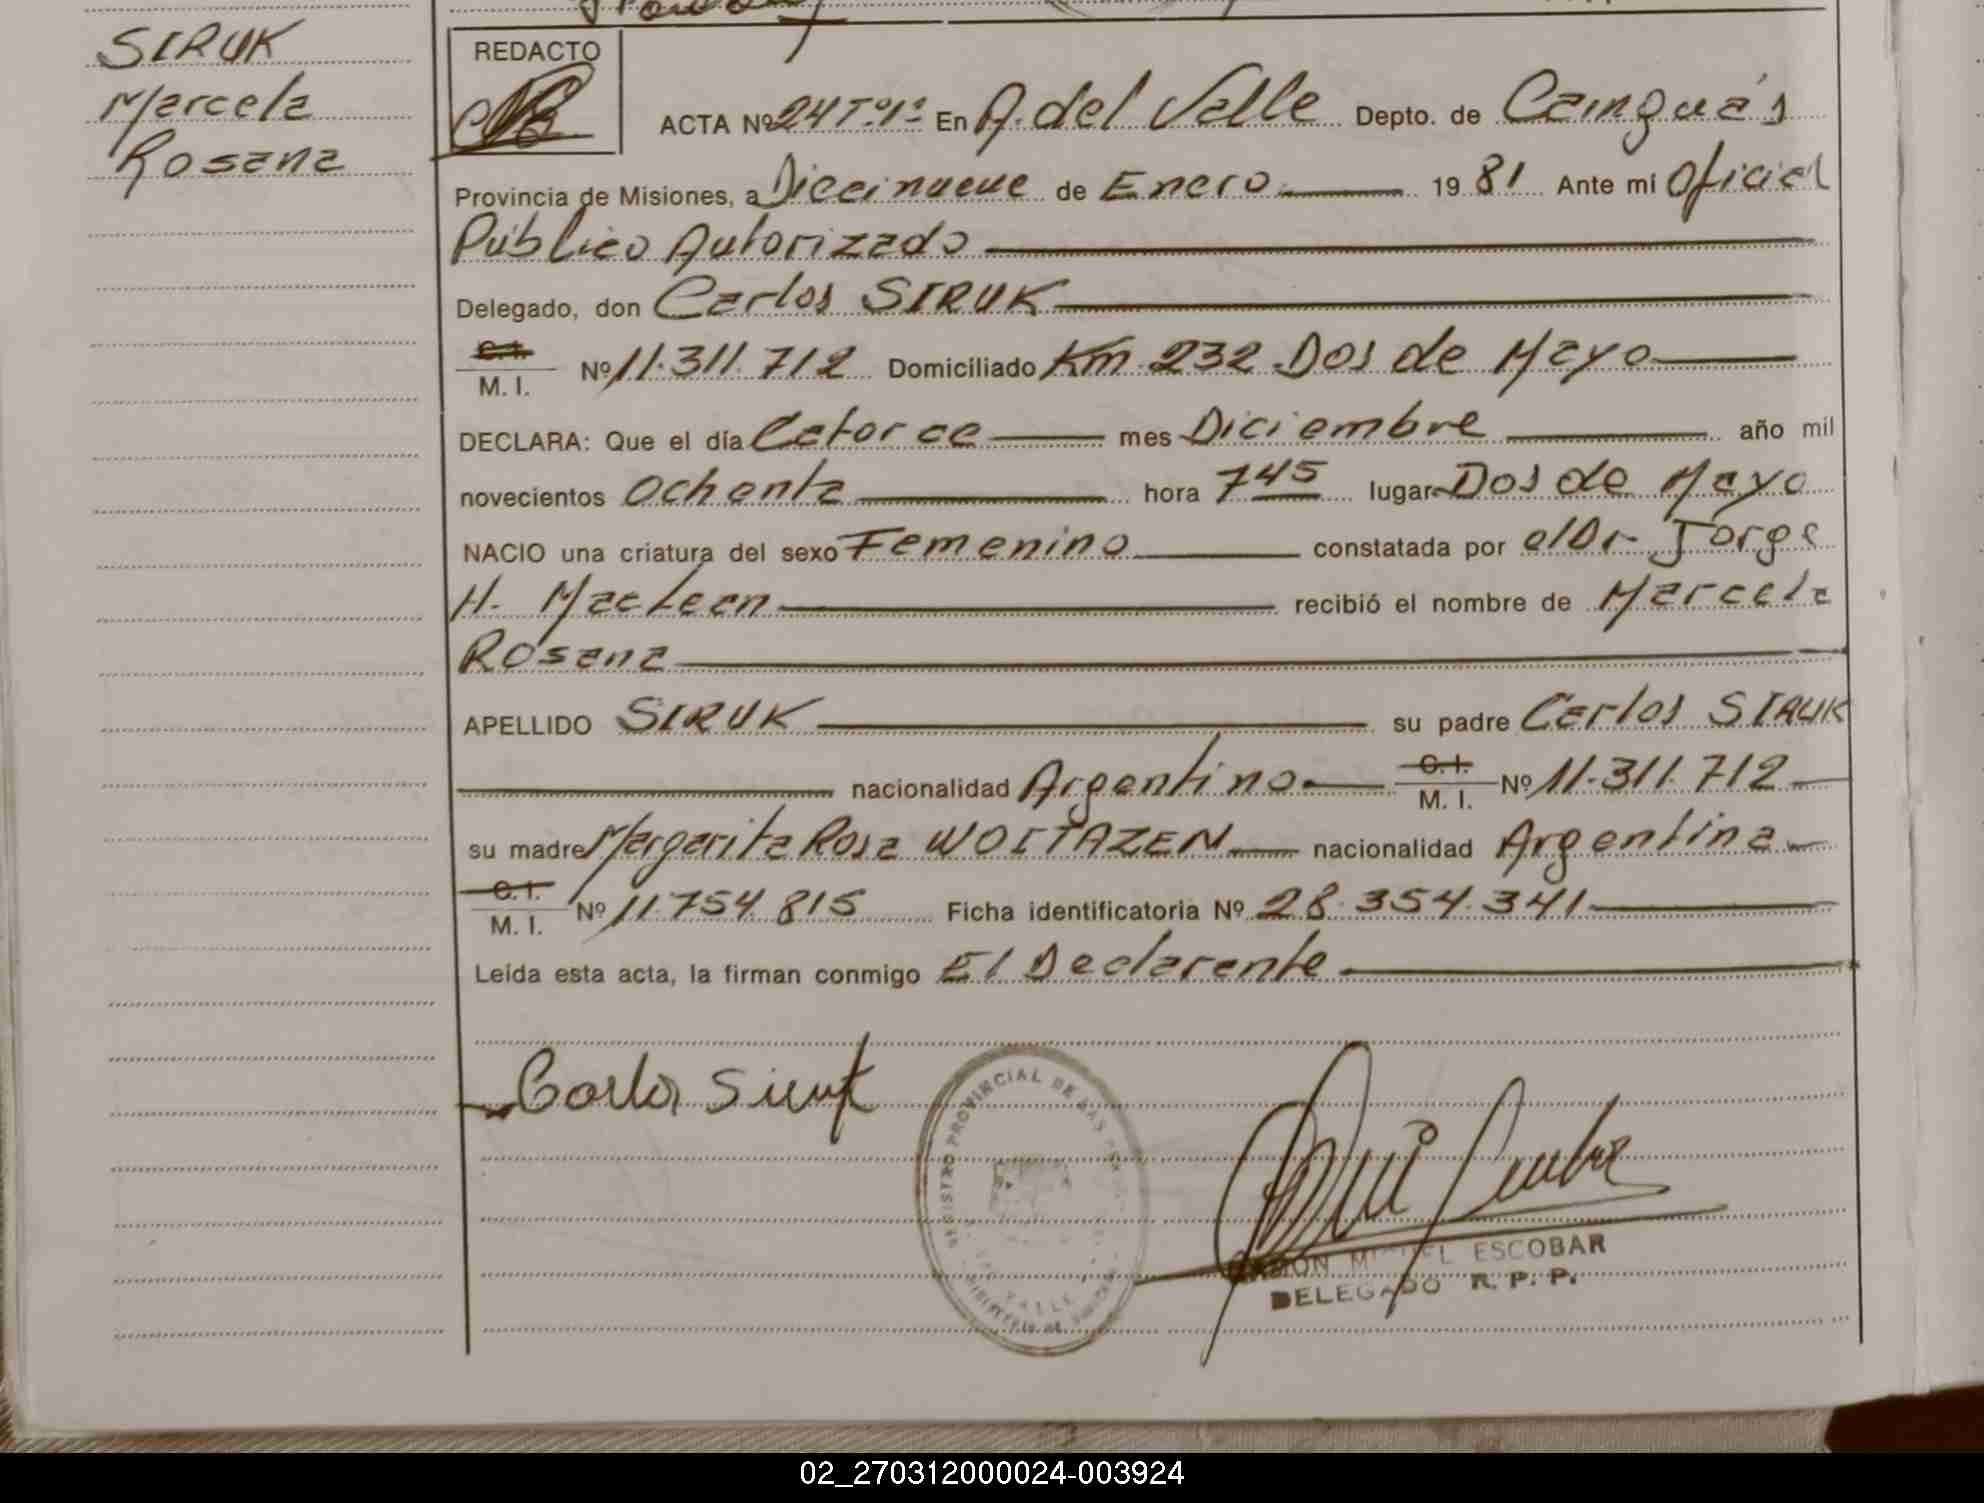 SIRUK
Marcela
Rosana
REDACTO
ACTA Nº 24 Tº1º En A. del Valle Depto. de Cainguás
Provincia de Misiones, a Diecinueve de Enero 19 81 Ante mi Oficial
Público Autorizado
Delegado, don Carlos SIRUK
C.I.
M. I. Nº 11.311.712 Domiciliado Km 232 Dos de Mayo
DECLARA: Que el día Catorce mes Diciembre año mil
novecientos Ochenta hora 7 45 lugar Dos de Mayo
NACIO una criatura del sexo Femenino constatada por el Dr. Jorge
H. MacLean recibió el nombre de Marcela
Rosana
APELLIDO SIRUK su padre Carlos SIRUK
nacionalidad Argentino C.I. M. I. Nº 11.311.712
su madre Margarita Rosa WOITAZEN nacionalidad Argentina
C.I.
M. I. Nº 11.754.815 Ficha identificatoria Nº 28.354.341
Leída esta acta, la firman conmigo El Declarente
Carlos Siruk
REGISTRO PROVINCIAL DE LAS
VALLE
RAMON MIGUEL ESCOBAR
DELEGADO R. P. P.
02_270312000024-003924